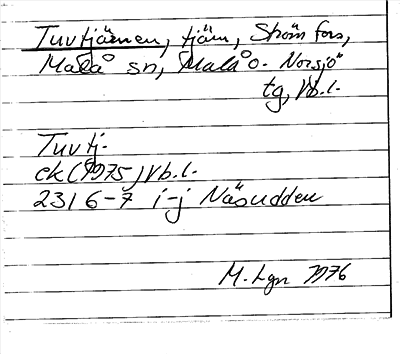 Tuvtjärnen, tjärn, Strömfors,
Malå sn, Malå o. Norsjö
tg, Vb.l.
Tuvtj.
ek (1975) Vb.l.
23I 6-7 i-j Näsudden
M. Lgn 1976